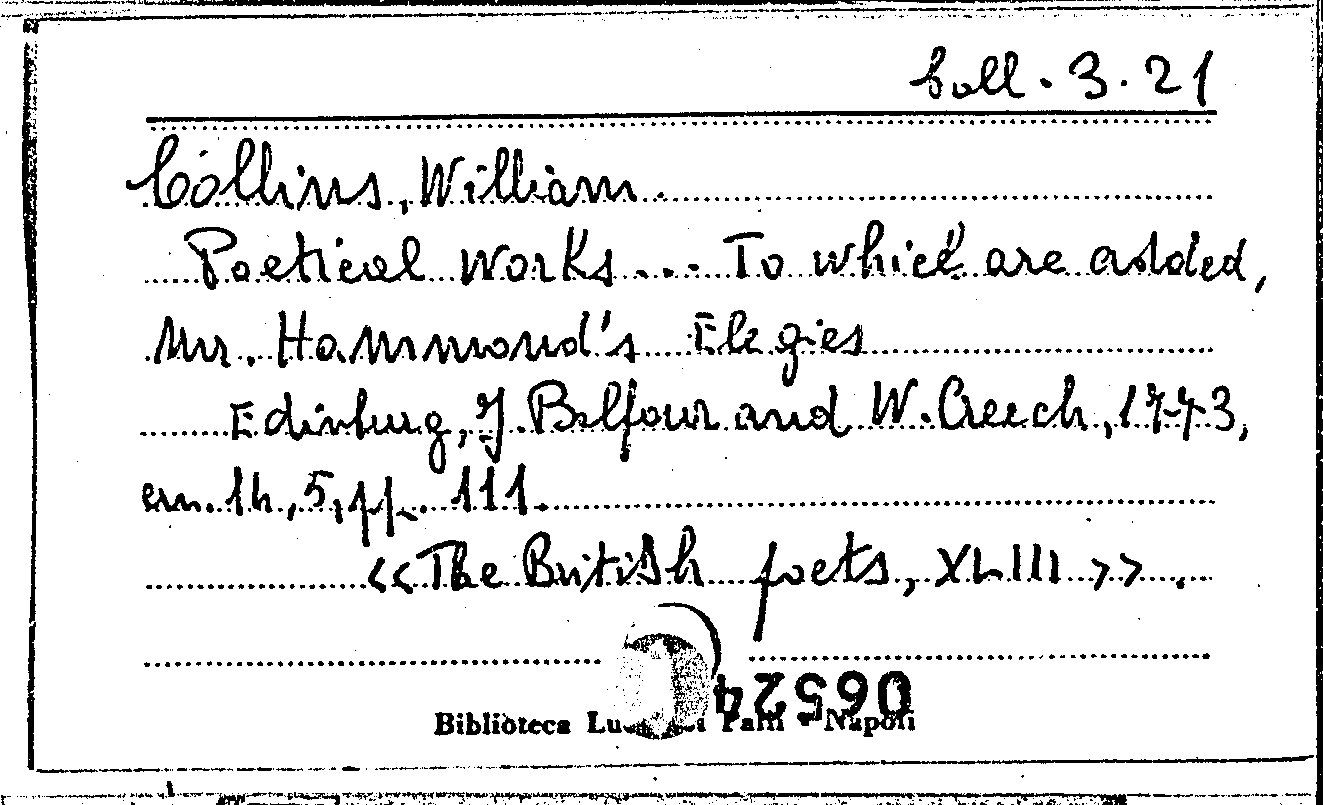 Coll. 3. 21
Collins, William.
Poetical Works... To which are added,
Mr. Hammond's Elegies
Edinburg, J. Balfour and W. Creech, 1773,
cm. 14,5, pp. 111.
<<The British poets, XLIII>>.
06524
Biblioteca Palli - Napoli